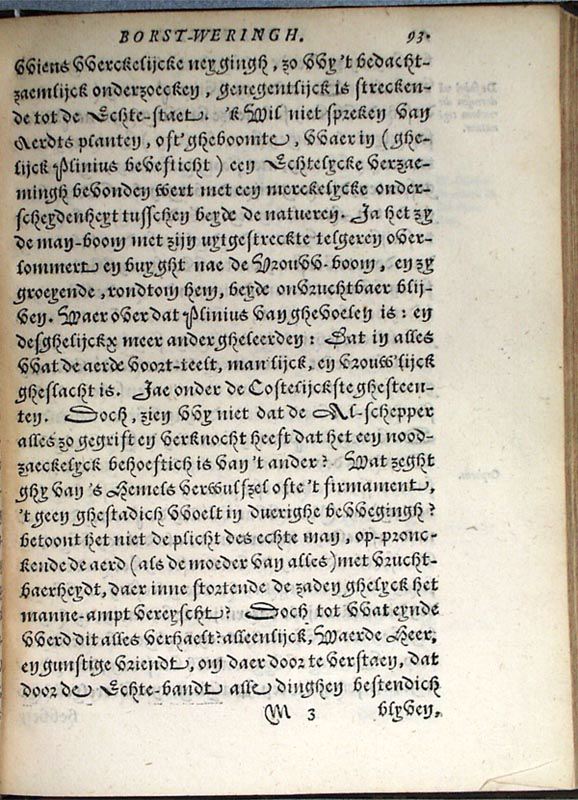 BORST-WERINGH. 93.
VViens VVerckelijcke neygingh, zo VVy 't bedacht-
zaemlijck onderzoecken, genegentlijck is strecken-
de tot de Echte-staet. 'k Wil niet spreken van
Aerdts planten, oft' gheboomte, VVaer in (ghe-
lijck Plinius bevesticht) een Echtelycke verzae-
mingh bevonden wert met een merckelycke onder-
scheydenheyt tusschen beyde de natueren. Ja het zy
de man-boom met zijn uytgestreckte telgeren over-
lommert en buyght nae de Vrouvv-boom, en zy
groeyende, rondtom hem, beyde onvruchtbaer blij-
ven. Waer over dat Plinius van ghevoelen is: en
desghelijckx meer ander gheleerden: Dat in alles
VVat de aerde voort-teelt, man'lijck, en vrouw'lijck
gheslacht is. Jae onder de Costelijckste ghesteen-
ten. Doch, zien VVy niet dat de Al-schepper
alles zo gegrift en verknocht heeft dat het een nood-
zaeckelyck behoeftich is van 't ander? Wat zeght
ghy van 's Hemels verwulfzel ofte 't firmament,
't geen ghestadich VVoelt in duerighe beVVegingh?
betoont het niet de plicht des echte man, op-pronc-
kende de aerd (als de moeder van alles) met vrucht-
baerheydt, daer inne stortende de zaden ghelyck het
manne-ampt vereyscht? Doch tot VVat eynde
VVerd dit alles verhaelt? alleenlijck, Waerde Heer,
en gunstige vriendt, om daer door te verstaen, dat
door de Echte-bandt alle dinghen bestendich
M 3 blyven,